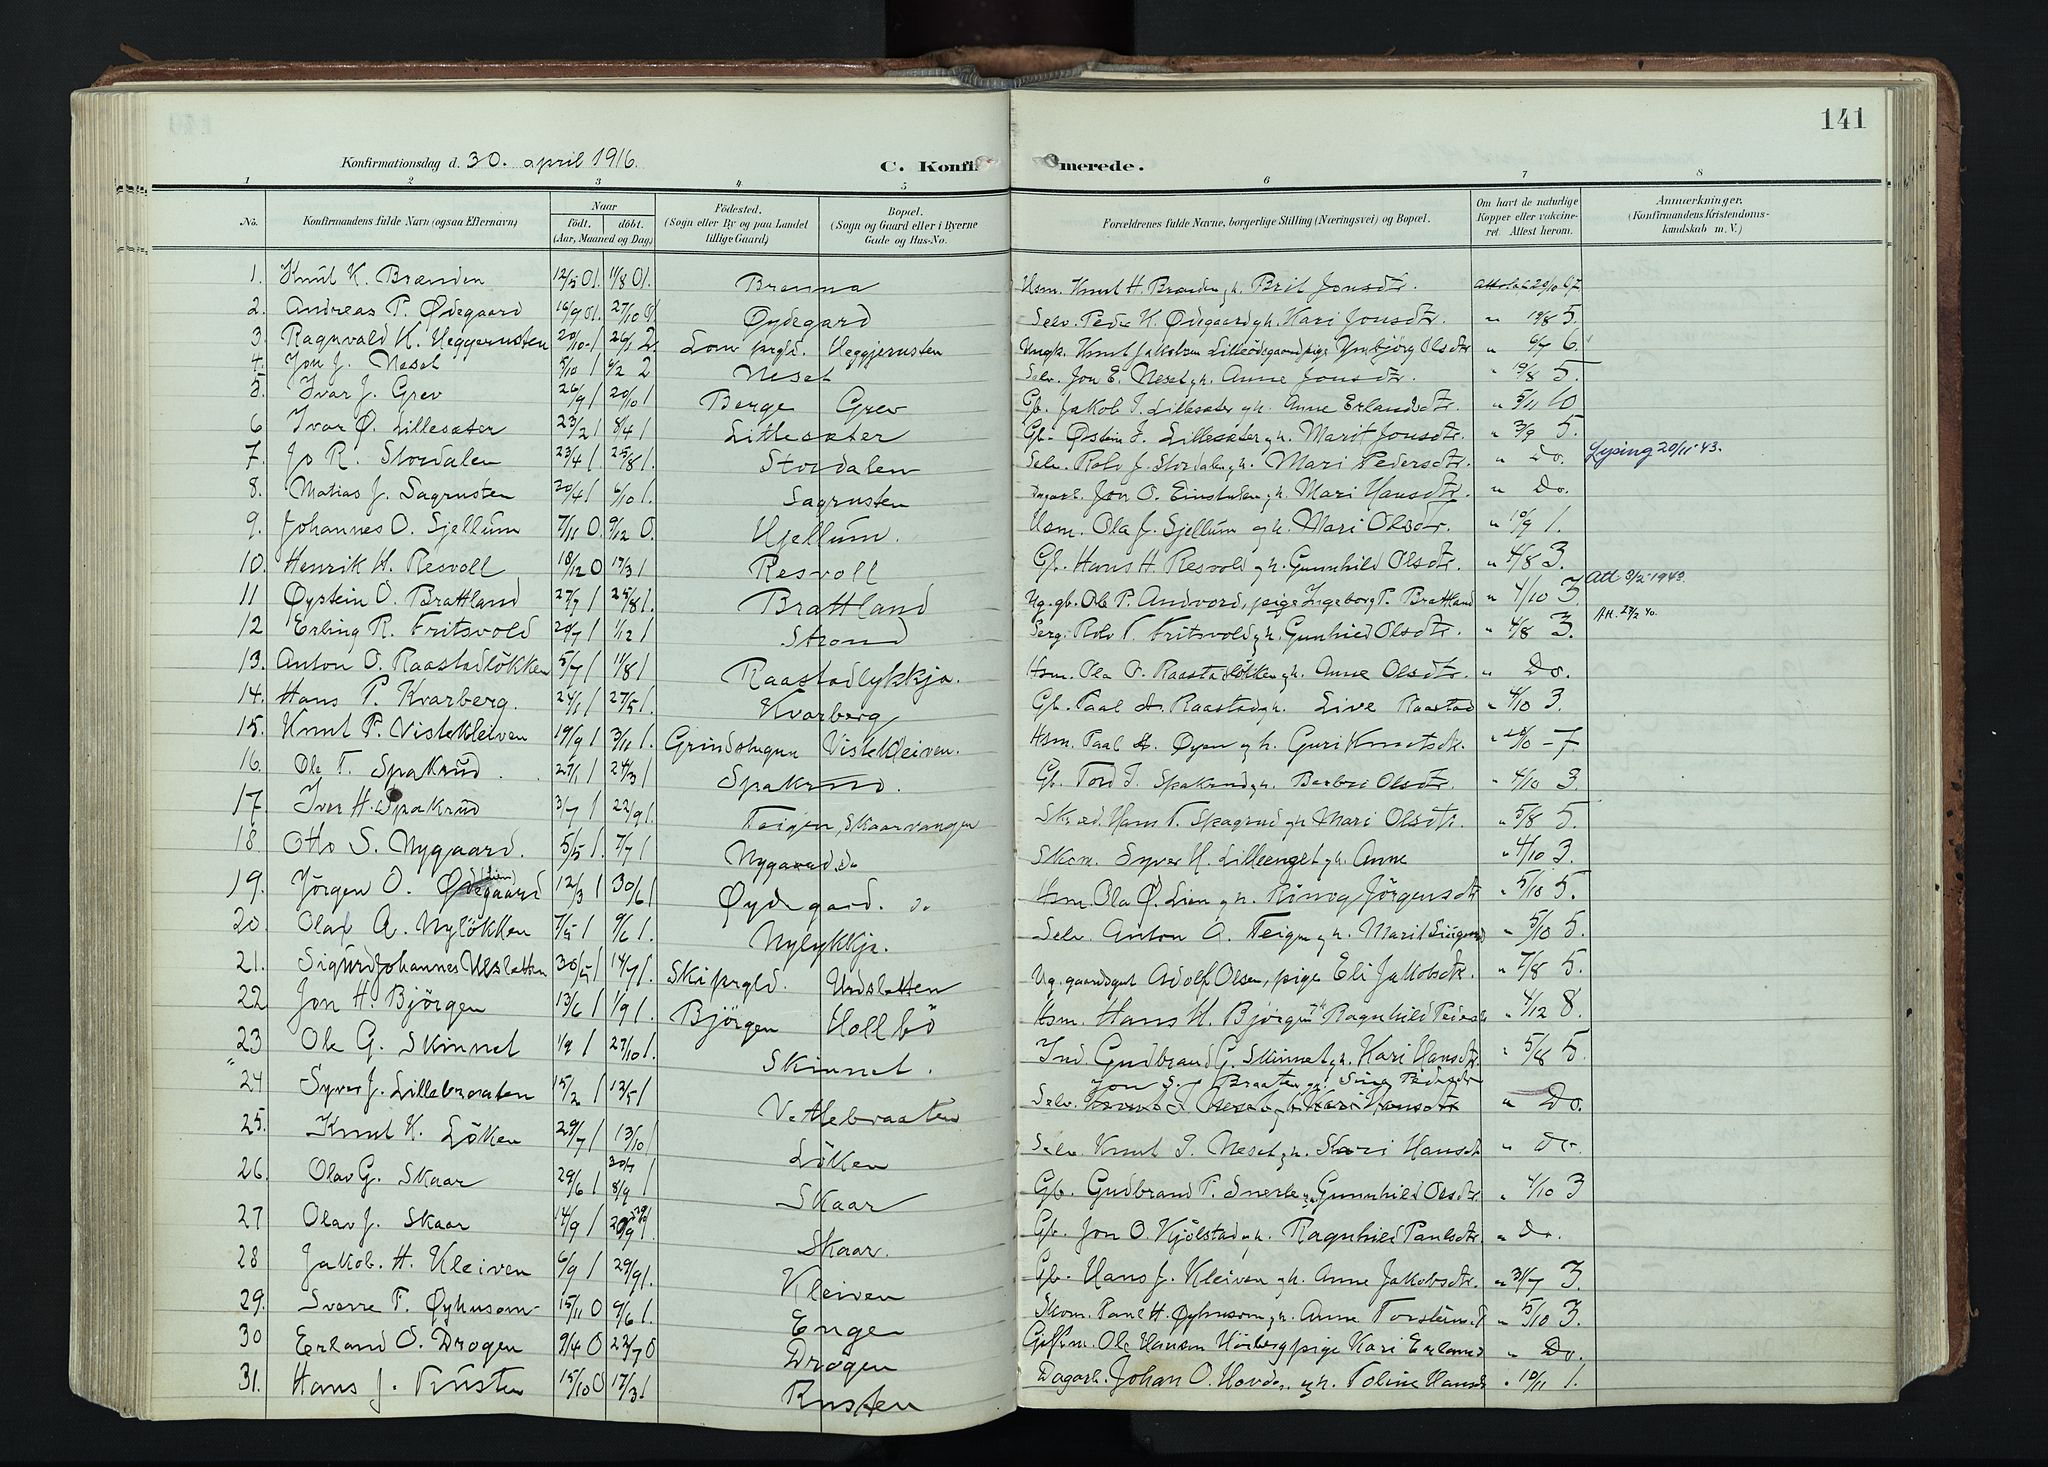 141
Konfirmationsdag d. 30. april 1916.
C. Konfirmerede.
1 2 3 4 5 6 7 8
No.
Konfirmandens fulde Navn (ogsaa Efternavn)
Naar
født. døbt.
(Aar, Maaned og Dag)
Fødested.
(Sogn eller By og paa Landet
tillige Gaard)
Bopæl.
(Sogn og Gaard eller i Byerne
Gade og Hus-No.
Forældrenes fulde Navne, borgerlige Stilling (Næringsvei) og Bopæl.
Om havt de naturlige
Kopper eller vakcine-
ret. Attest herom.
Anmærkninger.
(Konfirmandens Kristendoms-
kundskab m. V.)
1. Knut K. Brænden 12/5 01. 11/8 01. Brenna Usm. Knut H. Brænden g.h. Brit Jonsdtr. 20/10 07
2. Andreas P. Ødegaard 16/9 01. 27/10 01. Øydegard Selv. Peder K. Ødegaard g.h. Kari Jonsdtr. " 19/8 5.
3. Ragnvald K. Heggjerusten 20/10 1 26/1 2 Lom prgld. Heggjerusten Ungk. Knut Jakobsen Lilleødegaard pige Ymbjörg Olsdtr " 6/7 6.
4. Jon J. Neset 5/10 1 6/2 2 Neset Selv. Jon E. Neset g.h. Anne Jonsdtr. " 19/8 5.
5. Ivar J. Grev 26/9 1 20/10 1 Berge Grev Gb. Jakob I. Lillesæter g.h. Anne Erlandsdtr. " 5/11 10
6. Ivar Ø. Lillesæter 23/2 1 8/4 1 Litlesæter Gb. Østein J. Lillesæter g.h. Marit Jonsdtr. " 3/9 5.
7. Jo R. Stordalen 23/4 1 25/8 1. Stordalen Selv. Rolv J. Stordalen g.h. Mari Pedersdtr. " Do. Lysing 20/11 43.
8. Matias J. Sagrusten 30/4 1 6/10 1. Sagrusten Dagarb. Jon O. Einstulen g.h. Mari Hansdtr. " Do.
9. Johannes O. Sjellum 7/11 0 9/12 0. Hjellum. Usm. Ola J. Sjellum g.h. Mari Olsdtr. " 10/9 1.
10. Henrik H. Resvoll 18/12 0 17/3 1 Resvoll Gb. Hans H. Resvold g.h. Gunnhild Olsdtr. " 4/8 3.
11 Øystein O. Brattland 27/7 1 25/8 1. Brattland Ug. gb. Ole P. Andvord, pige Ingeborg P. Brattland " 4/10 3. Att 3/2 1943.
12 Erling R. Fritsvold 20/7 1 1/12 1 Strond Serg. Rolv T. Fritsvold g.h. Gunhild Olsdtr. " 4/8 3. Att. 27/2 40.
13. Anton O. Raastadløkken 5/7 1 11/8 1 Raastadlykkja. Hsm. Ola O. Raastadløkken g.h. Anne Olsdtr. " Do.
14. Hans P. Kvarberg. 24/1 1 27/5 1. Kvarberg Gb. Paal A. Raastad g.h. Live Raastad " 4/10 3.
15. Knut P. Vistekleiven 19/9 1 3/11 1. Grindstugun Vistekleiven. Hsm. Paal Øyen g.h. Guri Knutsdtr. " 28/10 - 7.
16. Ole T. Spakrud. 27/1 1 24/3 1 Spakrud. Gb. Tord I. Spakrud g.h. Barbro Olsdtr. " 4/10 3.
17. Iver H. Spakrud 3/7 1 22/9 1. Teigen, Skaarvangen Hans T. Spagrud g.h. Mari Olsdtr. " 5/8 5.
18. Otto S. Nygaard. 5/5 1. 7/7 1 Nygaard. do Skom. Syver H. Lilleenget g.h. Anne " 4/10 3.
19. Jørgen O. Ødegaard (Lien) 12/3 1 30/6 1 Øydegard. do Hsm. Ola Ø. Lien g.h. Rönnog Jörgensdtr " 5/10 5.
20. Olaf A. Nyløkken 7/5 1 9/6 1. Nylykkja. Selv. Anton O. Teigen g.h. Marit " 5/10 5.
21. Sigurd Johannes Ulslatten 30/5 1 14/7 1. Ski prgld. Undslatten Ug. gaardsgut Adolf Olsen, pige Eli Jakobsdtr. " 7/8 5.
22 Jon H. Bjørgen 13/6 1 1/9 1. Bjørgen Hollbö Hsm. Hans H. Bjørgen g.h. Ragnhild Pedersdtr " 4/12 8.
23 Ole G. Skinnet 1/9 1 27/10 1. Skinnet. Ind. Gudbrand G. Skinnet g.h. Kari Hansdtr. " 5/8 5.
24 Syver J. Lillebraaten 15/2 1 12/5 1 Vetlebraaten Selv. Jon S. Braaten g.h. Siri Pedersdtr " Do.
25. Knut K. Løken 29/7 1 13/10 1 Løken Selv. Knut I. Neset g.h. Kari Hansdtr " Do.
26. Olav G. Skaar 29/6 1 8/9 1 Skaar Gb. Gudbrand P. Snerle g.h. Gunnhild Olsdtr. " 4/10 3
27 Olav J. Skaar 14/9 1 29/9 1 Skaar. Gb. Jon O. Kjølstad g.h. Ragnhild Paulsdtr. " Do.
28 Jakob. H. Kleiven 6/9 1 29/9 1. Kleiven Gb. Hans J. Kleiven g.h. Anne Jakobsdtr. " 31/7 3.
29. Sverre P. Øyhusom 15/11 0 9/6 1. Enge Skom. Paul H. Øyhusom g.h. Anne Torsteinsdtr " 5/10 3.
30 Erland O. Drogen 9/4 0 22/7 0 Drogen Ole Hansen Høiberg pige Kari Erlandsd " Do.
31. Hans J. Rusten 15/10 0 17/3 1 Rusten Dagarb. Johan O. Hovde g.h. Toline Hansdtr " 10/11 1.